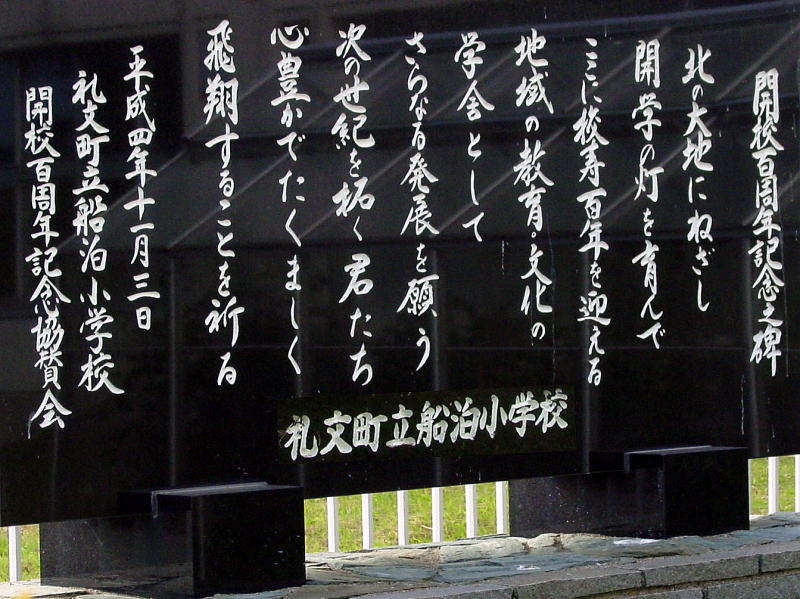 開校百周年記念之碑
北の大地にねざし
開学の灯を育んで
ここに校寿百年を迎える
地域の教育・文化の
学舎として
さらなる発展を願う
次の世紀を拓く君たち
心豊かでたくましく
飛翔することを祈る
平成四年十一月三日
礼文町立船泊小学校
開校百周年記念協賛会
礼文町立船泊小学校